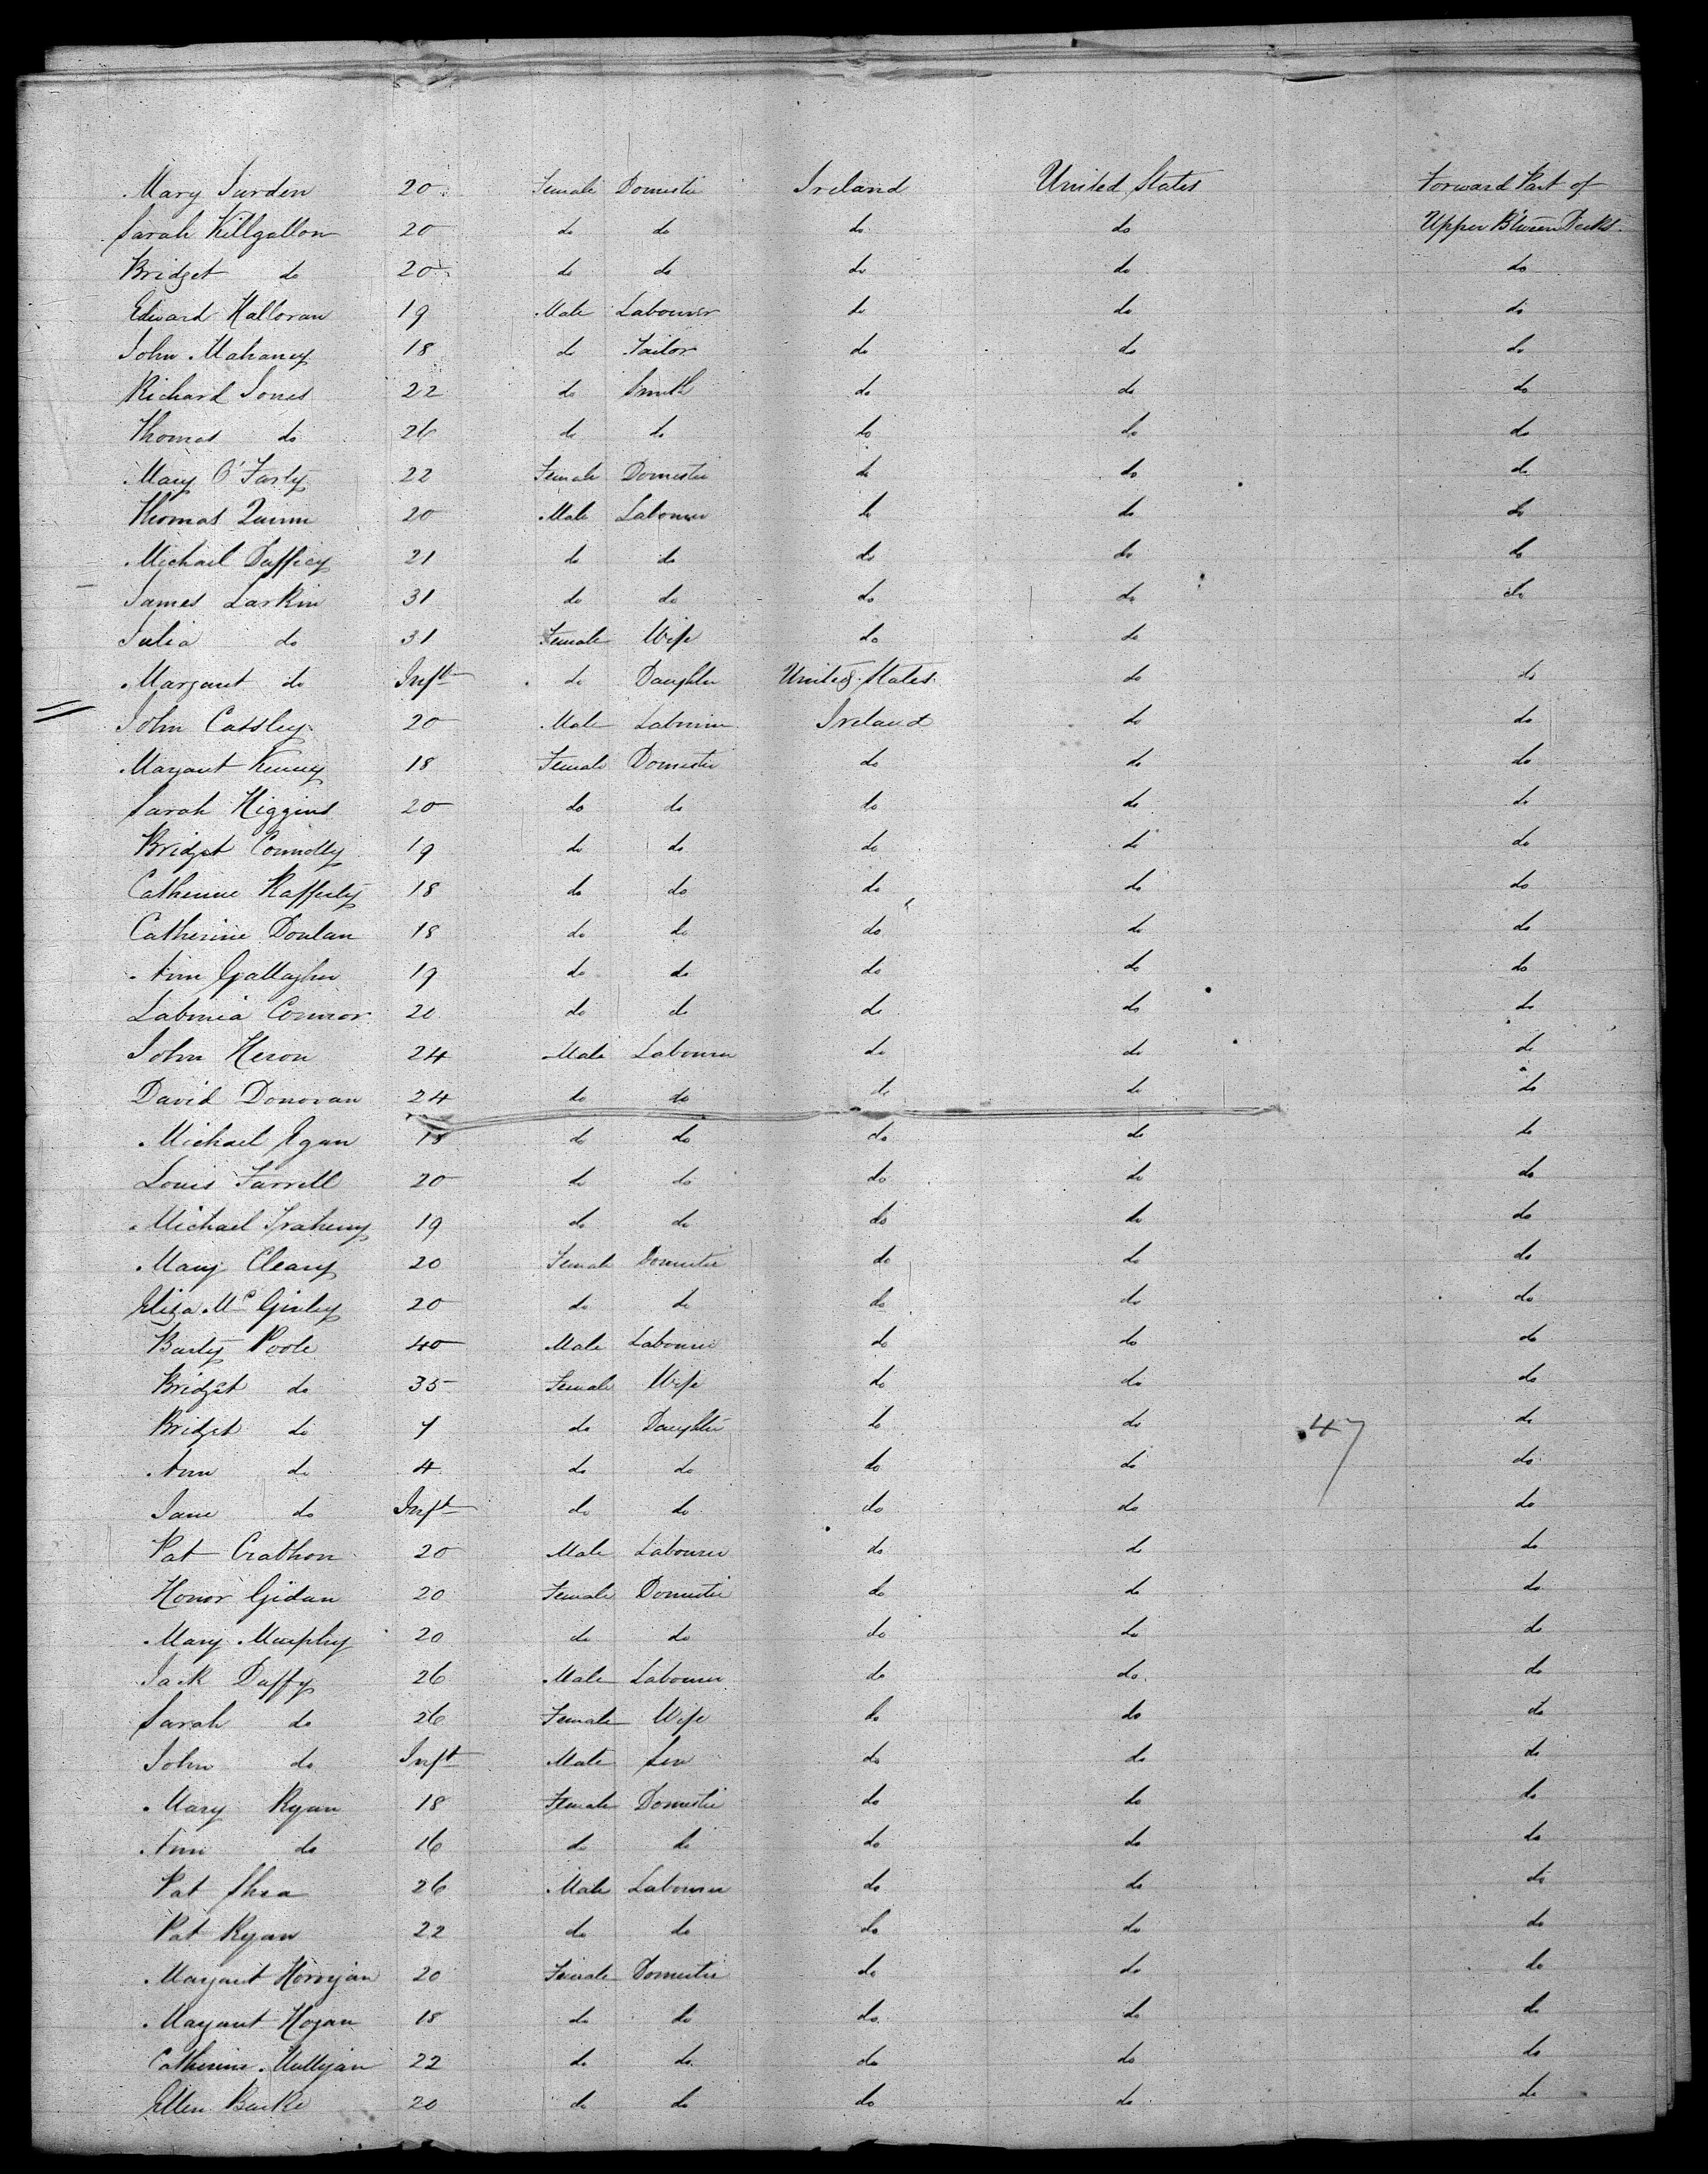 Mary Surden 20 Female Domestic Ireland United States Forward Part of
Sarah Killgallon 20 do do do do Upper B'tween Decks
Bridget do 20 do do do do do
Edward Halloran 19 Male Labourer do do do
John Mahaney 18 do Tailor do do do
Richard Jones 22 do Smith do do do
Thomas do 26 do do do do do
Mary O'Farty 22 Female Domestic do do do
Thomas Quinn 20 Male Labourer do do do
Michael Duffiey 21 do do do do do
James Larkin 31 do do do do do
Julia do 31 Female Wife do do
Margaret do Inft do Daughter United States do do
John Cassley 20 Male Labourer Ireland do do
Margaret Kenney 18 Female Domestic do do do
Sarah Higgins 20 do do do do do
Bridget Connolly 19 do do do do do
Catherine Rafferty 18 do do do do do
Catherine Doulan 18 do do do do do
Ann Gallagher 19 do do do do do
Labinia Connor 20 do do do do do
John Heron 24 Male Labourer do do do
David Donovan 24 do do do do do
Michael Egan 18 do do do do do
Louis Farrell 20 do do do do do
Michael 19 do do do do do
Mary Cleary 20 Female Domestic do do do
Eliza Mc Ginley 20 do do do do do
Barty Poole 40 Male Labourer do do do
Bridget do 35 Female Wife do do do
Bridget do 7 do Daughter do do 47 do
Ann do 4 do do do do do
Jane do Inft do do do do do
Pat Crathon 20 Male Labourer do do do
Honor Gidan 20 Female Domestic do do do
Mary Murphy 20 do do do do do
Jack Duffy 26 Male Labourer do do do
Sarah do 26 Female Wife do do do
John do Inft Male Son do do do
Mary Ryan 18 Female Domestic do do do
Ann do 16 do do do do do
Pat Shea 26 Male Labourer do do do
Pat Ryan 22 do do do do do
Margaret Horrigan 20 Female Domestic do do do
Margaret Hogan 18 do do do do do
Catherine Mulligan 22 do do do do do
Ellen Burke 20 do do do do do